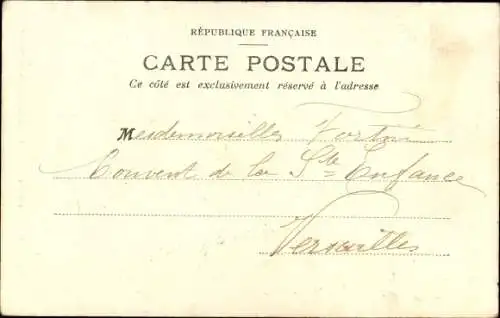 RÉPUBLIQUE FRANÇAISE
CARTE POSTALE
Ce côté est exclusivement réservé à l'adresse
Mesdemoiselles
Couvent de la Ste Enfance
Versailles